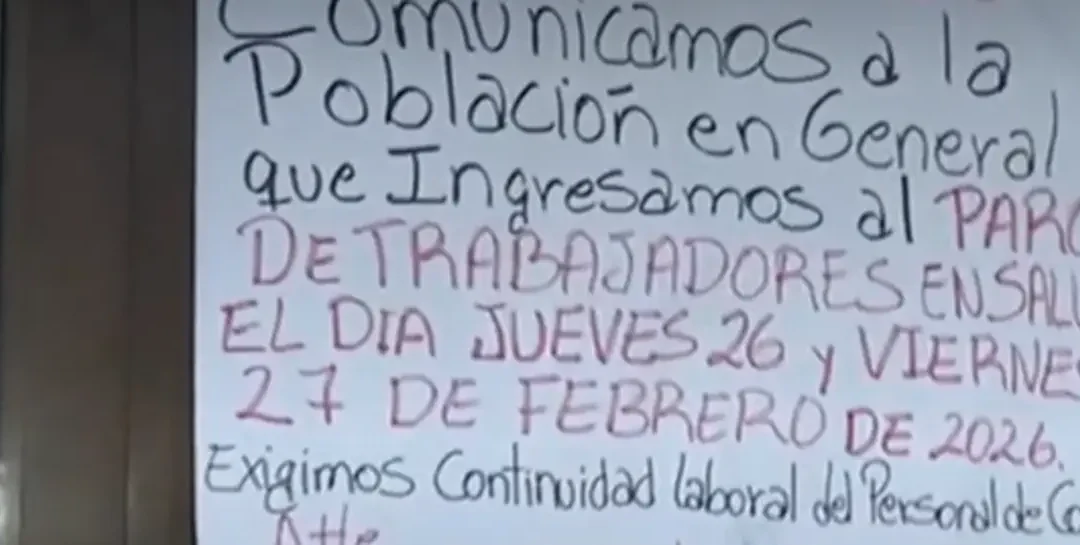 Comunicamos a la
Población en General
que Ingresamos al PARO
DE TRABAJADORES EN SALU
EL DIA JUEVES 26 y VIERNES
27 DE FEBRERO DE 2026.
Exigimos Continuidad laboral del Personal de Co
Atte